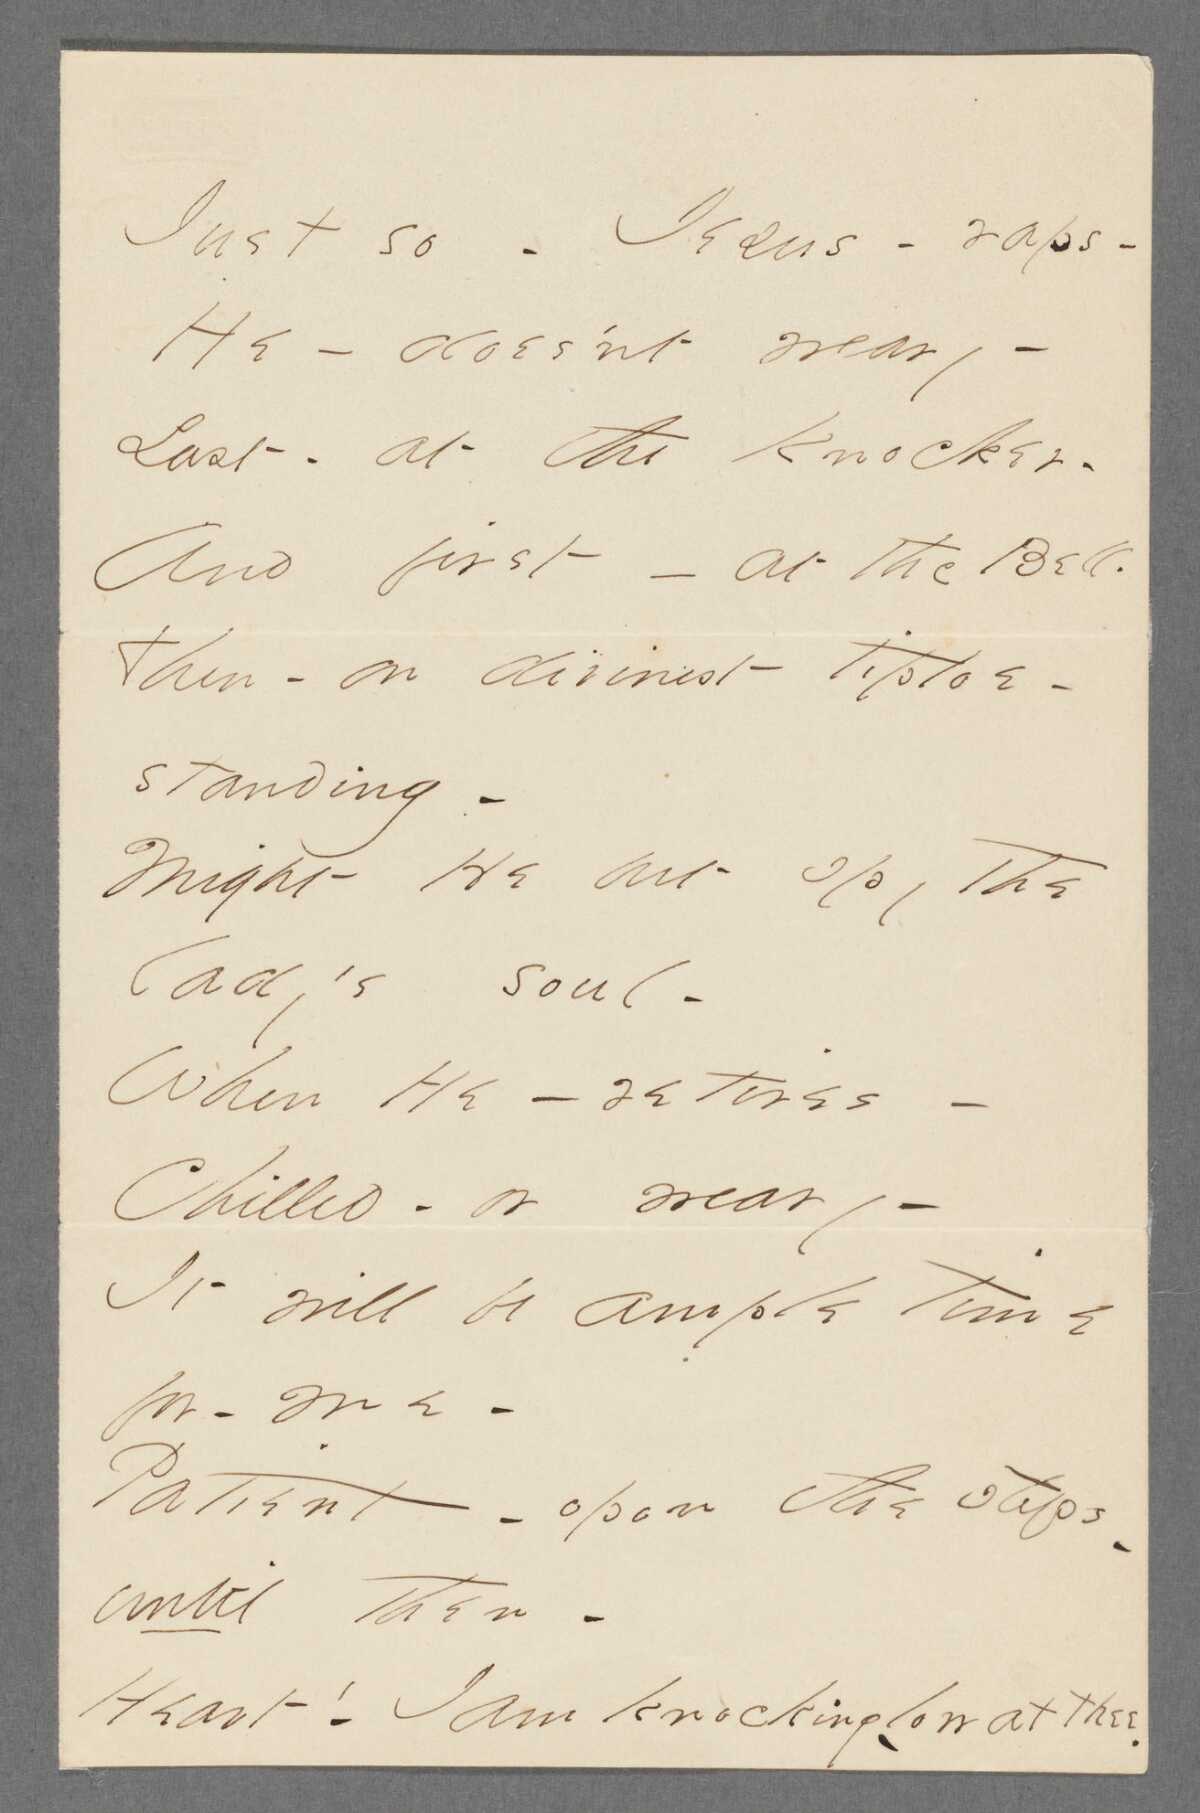 Just so - Jesus - raps -
He - does'nt weary -
Last - at the Knocker -
And first - at the Bell.
Then - on divinest tiptoe -
standing -
Might He but spy the
lady's soul -
When He - retires -
Chilled - or weary -
It will be ample time
for - me -
Patient - upon the steps -
until then -
Heart! I am knocking - low at thee.